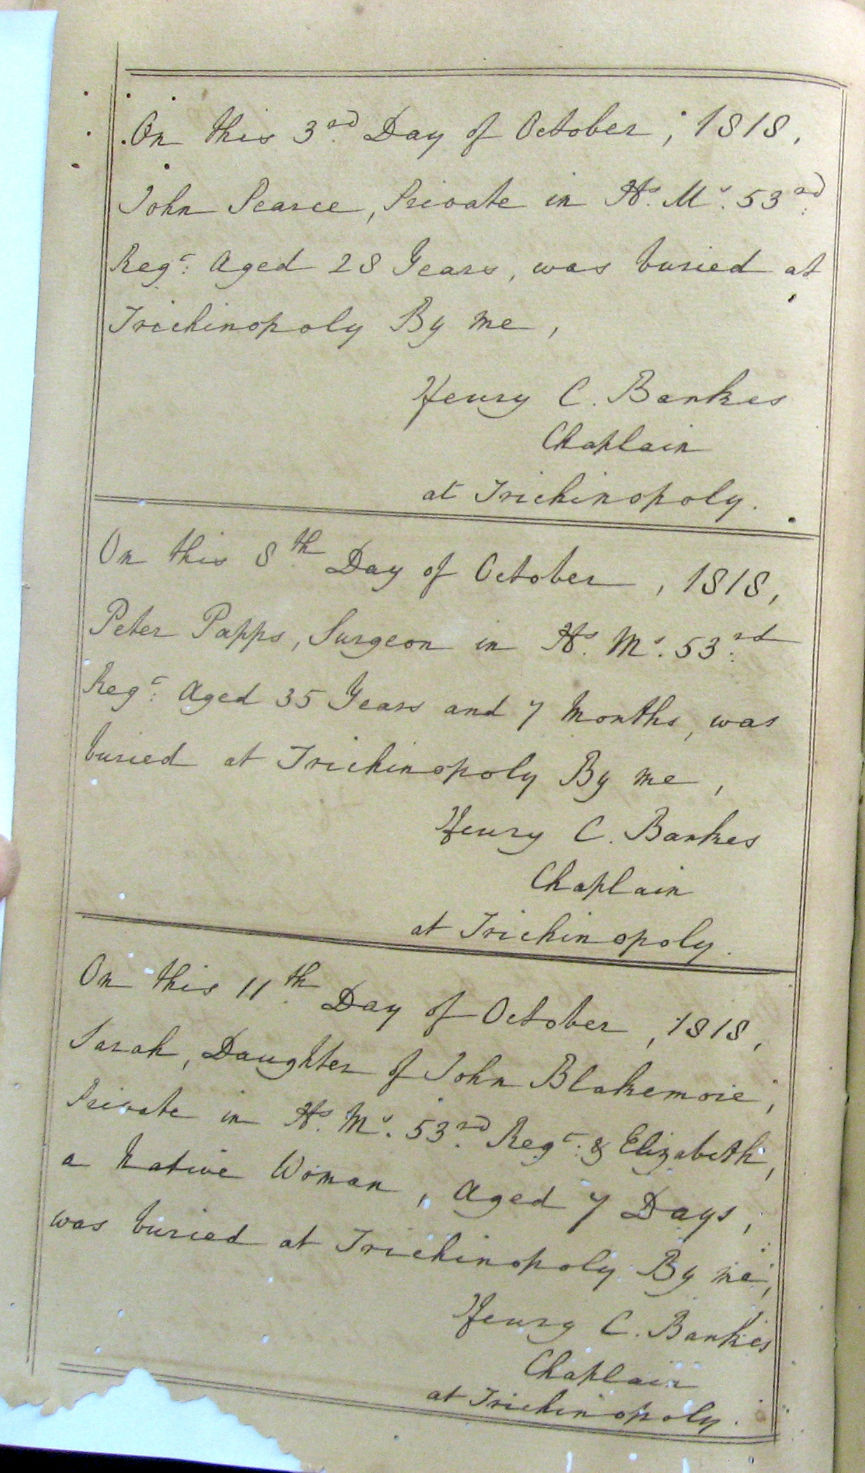 On this 3rd Day of October, 1818,
John Pearce, Private in Hs. Ms. 53rd
Regt: Aged 28 Years, was buried at
Trichinopoly By me,
Henry C. Bankes
Chaplain
at Trichinopoly.
On this 8th Day of October, 1818,
Peter Papps, Surgeon in Hs. Ms. 53rd
Regt: Aged 35 Years and 7 Months, was
buried at Trichinopoly By me,
Henry C. Bankes
Chaplain
at Trichinopoly.
On this 11th Day of October, 1818,
Sarah, Daughter of John Blakemore,
Private in Hs. Ms. 53rd Regt: & Elizabeth,
a Native Woman, Aged 7 Days,
was buried at Trichinopoly By me,
Henry C. Bankes
Chaplain
at Trichinopoly.